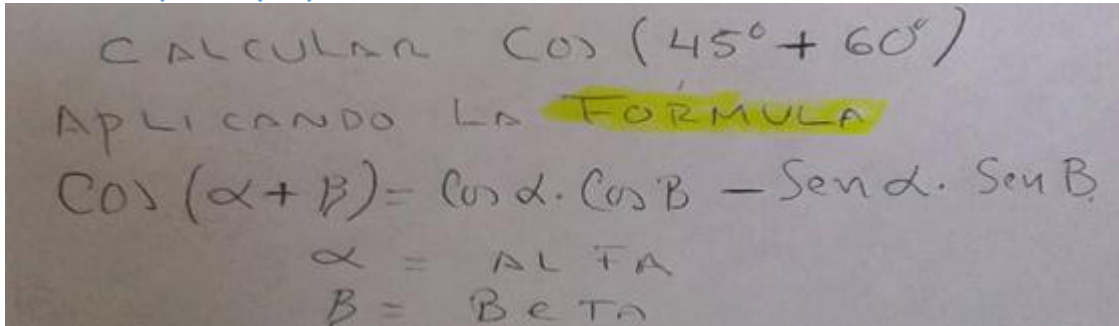 CALCULAR COS (45° + 60°)
APLICANDO LA FÓRMULA
COS (α + β) = Cos α . Cos B – Sen α . Sen B.
α = ALFA
β = BETA